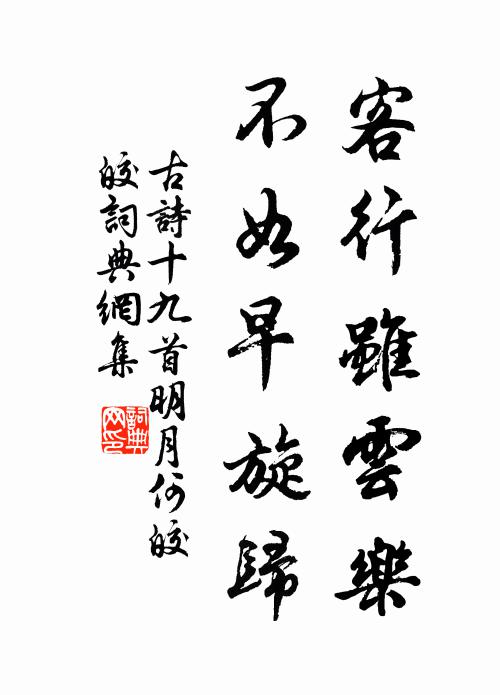 客行雖雲樂
不如早旋歸
古詩十九首明月何皎
皎詞典網集
詞典
网印